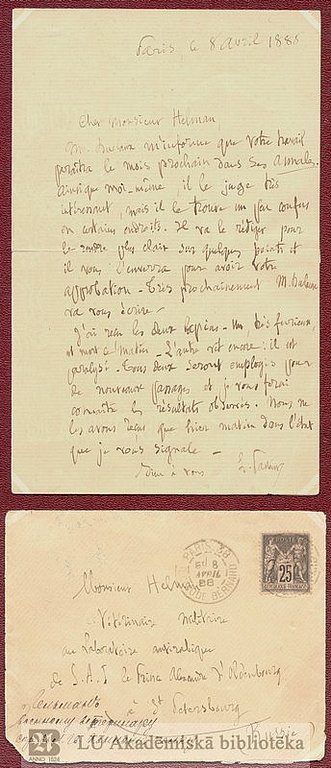 Paris, le 8 avril 1888
Cher Monsieur Helman,
M. Duclaux m'informe que votre travail
paraîtra le mois prochain dans ses Annales.
Ainsi que moi-même, il le juge très
intéressant, mais il le trouve un peu confus
en certains endroits. Il va le rédiger pour
le rendre plus clair sur quelques points et
il vous l'enverra pour avoir votre
approbation. Très prochainement M. Duclaux
va vous écrire.
J'ai reçu les deux lapins. Un, très furieux,
est mort ce matin. L'autre vit encore: il est
paralysé. Tous deux seront employés pour
de nouveaux passages et je vous ferai
connaître les résultats observés. Nous ne
les avons reçus que hier matin dans l'état
que je vous signale.
à vous L. Pasteur
PARIS 28
8 AVRIL
88
BERNARD
POSTES
25
Monsieur Helman
Vétérinaire militaire
au laboratoire antirabique
de S. A. I. le Prince Alexandre d'Oldenbourg
à St Petersbourg
Russie
ANNO 1524
LU Akadēmiskā bibliotēka